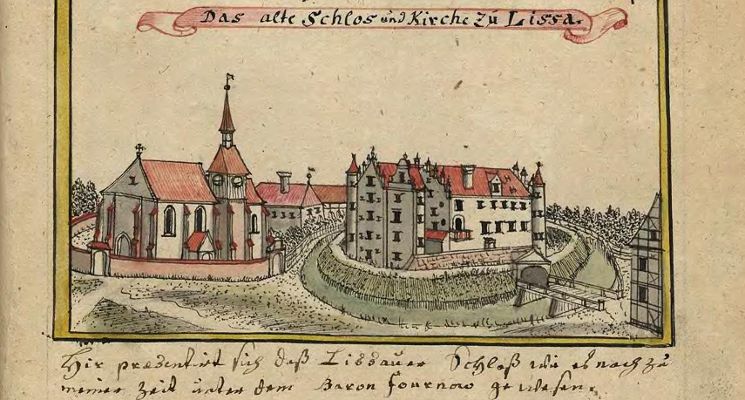 Das alte Schlos und Kirche zu Lissa.
Hir praesentirt sich daß Lissauer Schloß wie es nach zu
meiner Zeit unter dem Baron Fournow gewesen.